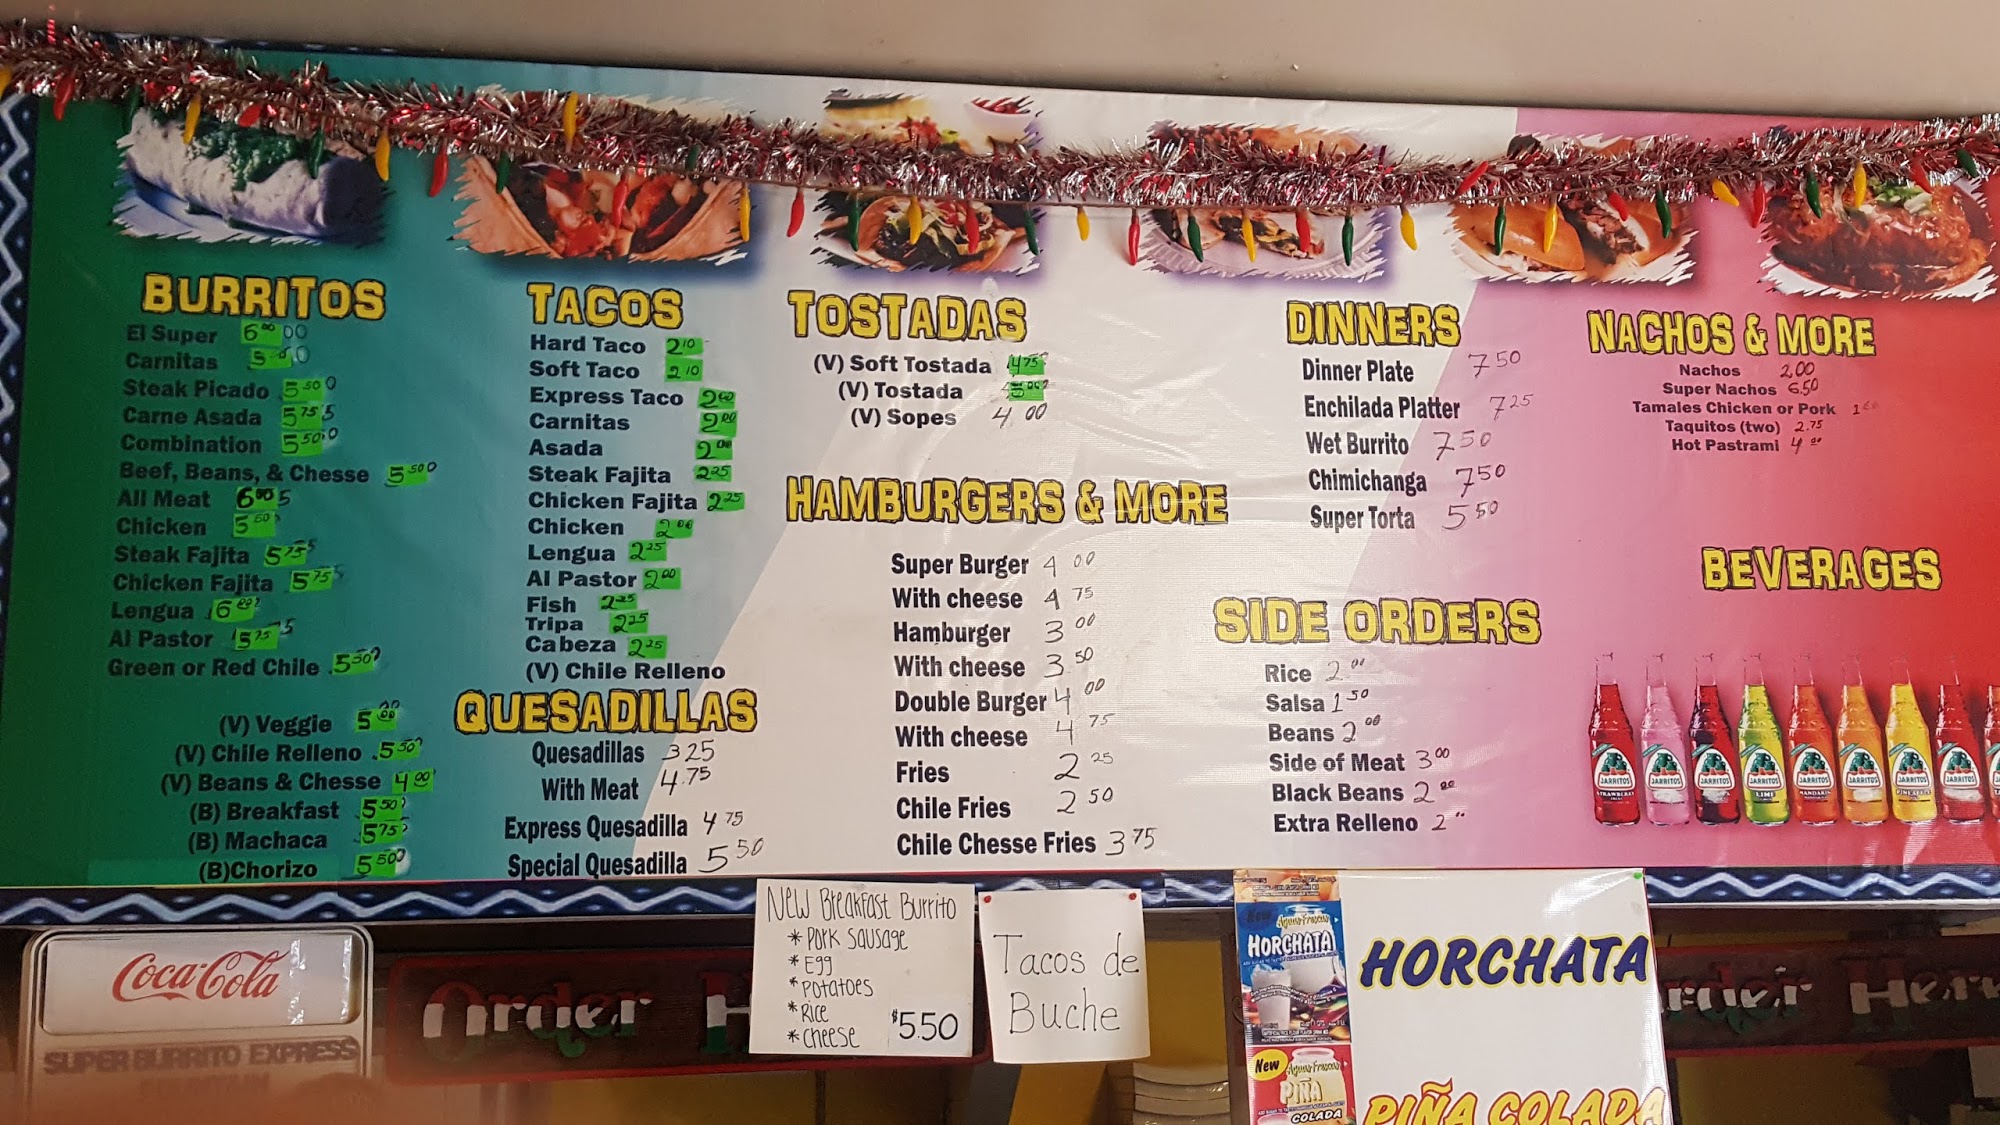 BURRITOS
El Super 6.00
Carnitas
Steak Picado 5.50
Carne Asada 5.75
Combination 5.50
Beef, Beans, & Chesse 5.50
All Meat 6.00
Chicken 5.50
Steak Fajita 5.75
Chicken Fajita 5.75
Lengua 6.00
Al Pastor 5.75
Green or Red Chile 5.50
(V) Veggie 5.00
(V) Chile Relleno 5.50
(V) Beans & Chesse 4.00
(B) Breakfast 5.50
(B) Machaca 5.75
(B)Chorizo 5.50
TACOS
Hard Taco 2.10
Soft Taco 2.10
Express Taco
Carnitas 2.00
Asada 2.00
Steak Fajita 2.25
Chicken Fajita 2.25
Chicken 2.00
Lengua 2.25
Al Pastor 2.00
Fish 2.25
Tripa 2.25
Cabeza 2.25
(V) Chile Relleno
QUESADILLAS
Quesadillas 3.25
With Meat 4.75
Express Quesadilla 4.75
Special Quesadilla 5.50
TOSTADAS
(V) Soft Tostada 4.75
(V) Tostada
(V) Sopes 4.00
HAMBURGERS & MORE
Super Burger 4.00
With cheese 4.75
Hamburger 3.00
With cheese 3.50
Double Burger 4.00
With cheese 4.75
Fries 2.25
Chile Fries 2.50
Chile Chesse Fries 3.75
DINNERS
Dinner Plate 7.50
Enchilada Platter 7.25
Wet Burrito 7.50
Chimichanga 7.50
Super Torta 5.50
SIDE ORDERS
Rice 2.00
Salsa 1.50
Beans 2.00
Side of Meat 3.00
Black Beans 2.00
Extra Relleno 2.00
NACHOS & MORE
Nachos 2.00
Super Nachos 6.50
Tamales Chicken or Pork
Taquitos (two) 2.75
Hot Pastrami 4.00
BEVERAGES
JARRITOS
JARRITOS
JARRITOS
JARRITOS
LIME
JARRITOS
JARRITOS
JARRITOS
JARRITOS
Coca-Cola
SUPER BURRITO EXPRESS
Order H
New Breakfast Burrito
* Pork sausage
* Egg
* Potatoes
* Rice
* cheese
$5.50
Tacos de
Buche
New Aguas Frescas
HORCHATA
New Aguas Frescas
PIÑA
COLADA
HORCHATA
PIÑA COLADA
rder Her